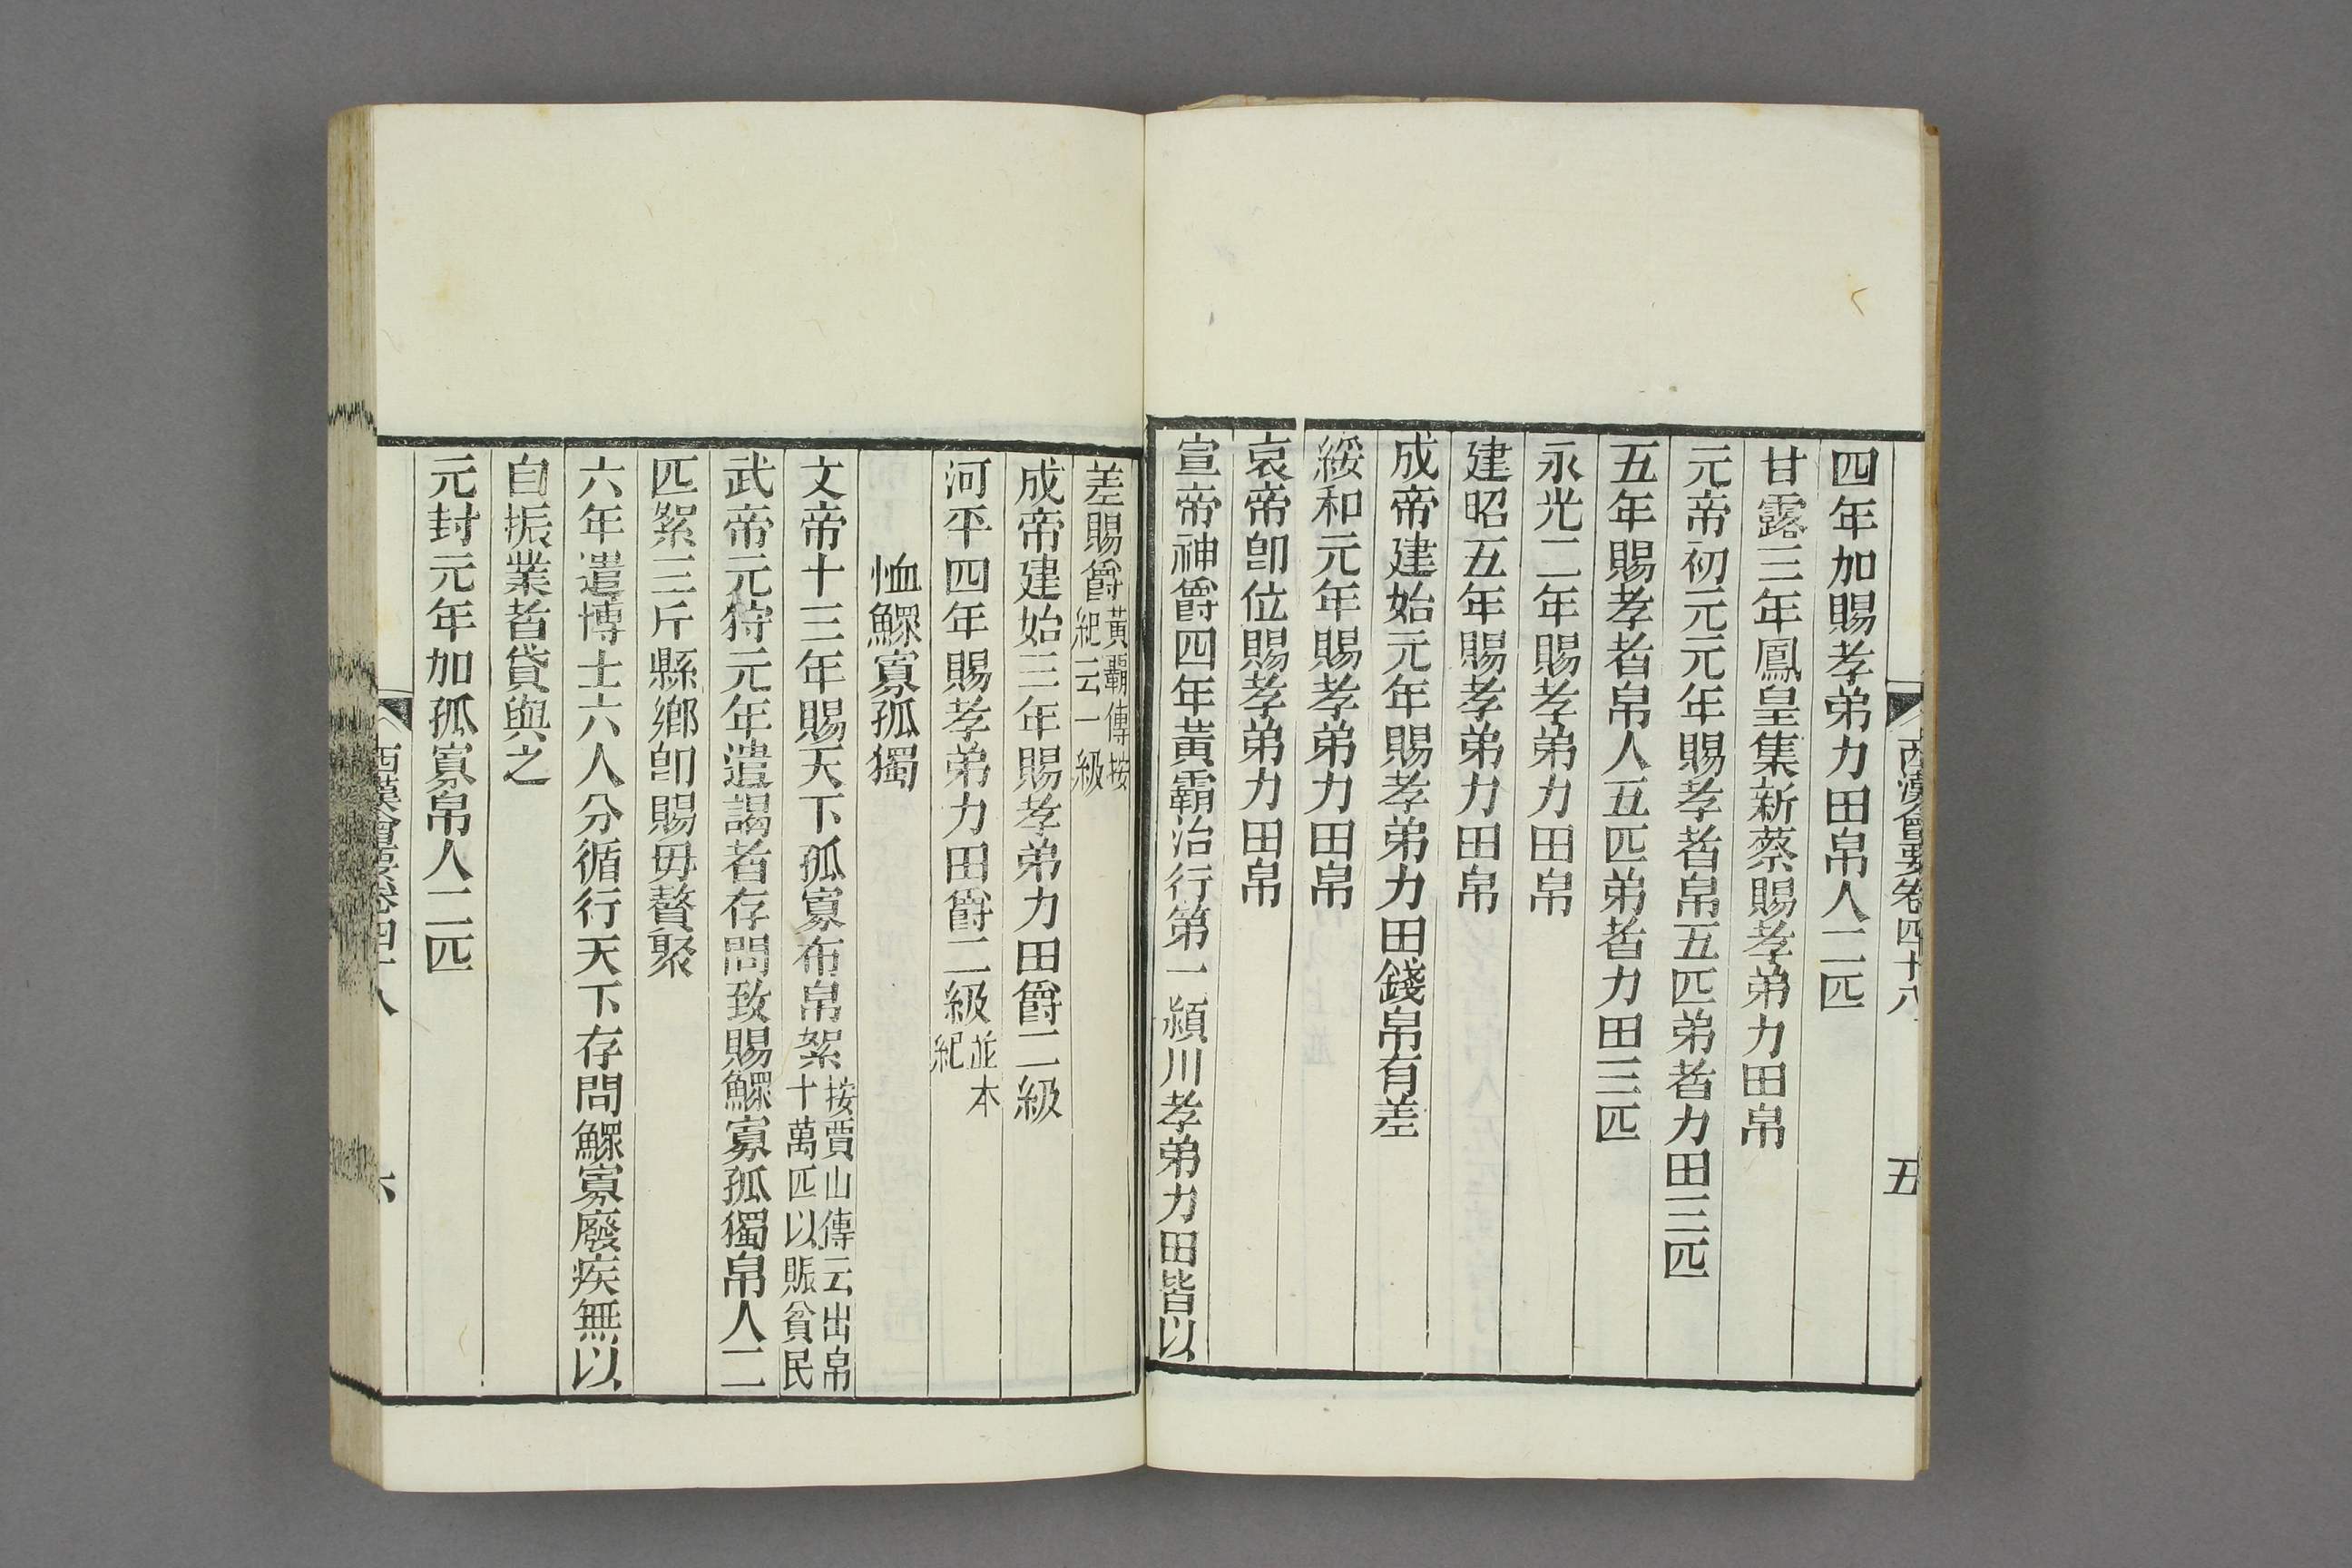 西漢會要卷四十八
五
四年加賜孝弟力田帛人二匹
甘露三年鳳皇集新蔡賜孝弟力田帛
元帝初元元年賜孝者帛五匹弟者力田三匹
五年賜孝者帛人五匹弟者力田三匹
永光二年賜孝弟力田帛
建昭五年賜孝弟力田帛
成帝建始元年賜孝弟力田錢帛有差
綏和元年賜孝弟力田帛
哀帝卽位賜孝弟力田帛
宣帝神爵四年黃霸治行第一潁川孝弟力田皆以
差賜爵黃霸傳按紀云一級
成帝建始三年賜孝弟力田爵二級
河平四年賜孝弟力田爵二級並本紀
恤鰥寡孤獨
文帝十三年賜天下孤寡布帛絮按賈山傳云出帛十萬匹以賑貧民
武帝元狩元年遣謁者存問致賜鰥寡孤獨帛人二
匹絮三斤縣鄉卽賜毋贅聚
六年遣博士六人分循行天下存問鰥寡廢疾無以
自振業者貸與之
元封元年加孤寡帛人二匹
西漢會要卷四十八
六